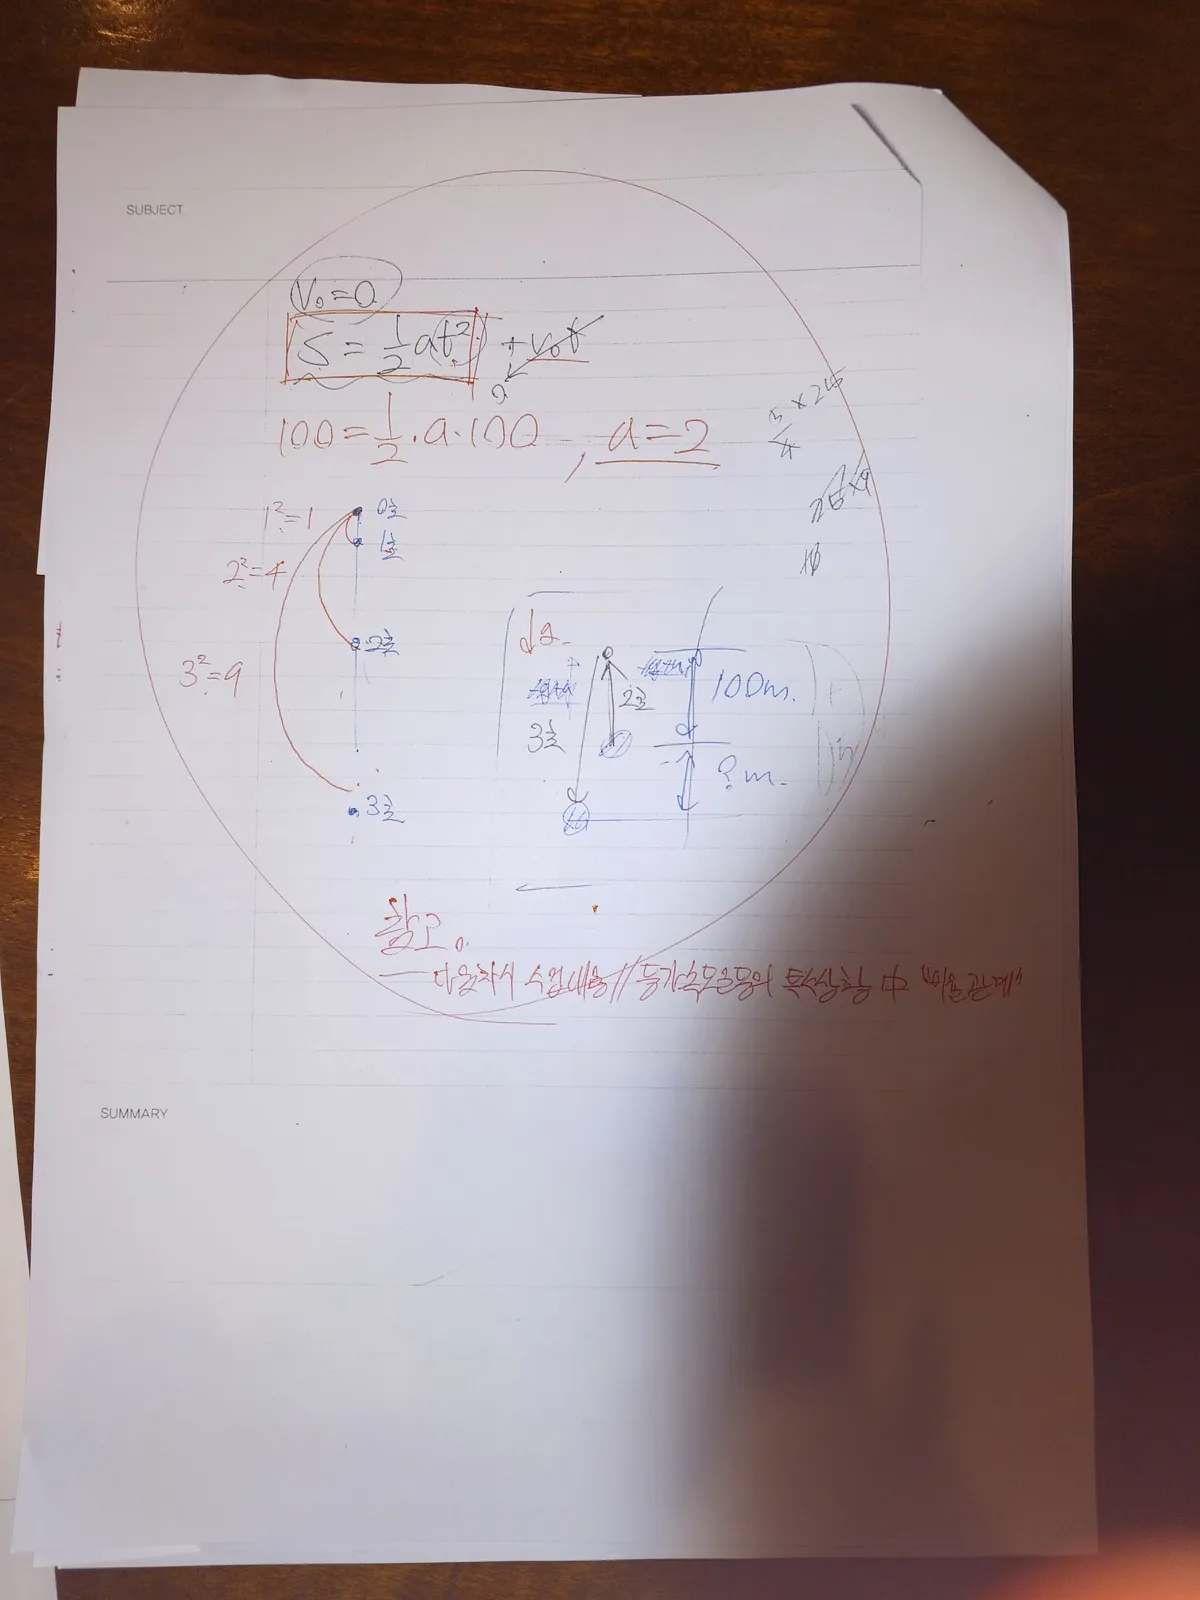 SUBJECT
V₀=0
S = 1/2 at² + v₀t
0
100 = 1/2 · a · 100 , a = 2
5/4 × 25
25 × 9
1²=1
0초
1초
2²=4
2초
3²=9
3초
2초
100m.
3초
? m.
참고.
— 다음차시 수업내용 // 등가속도운동의 특수상황 中 "비율관계"
SUMMARY